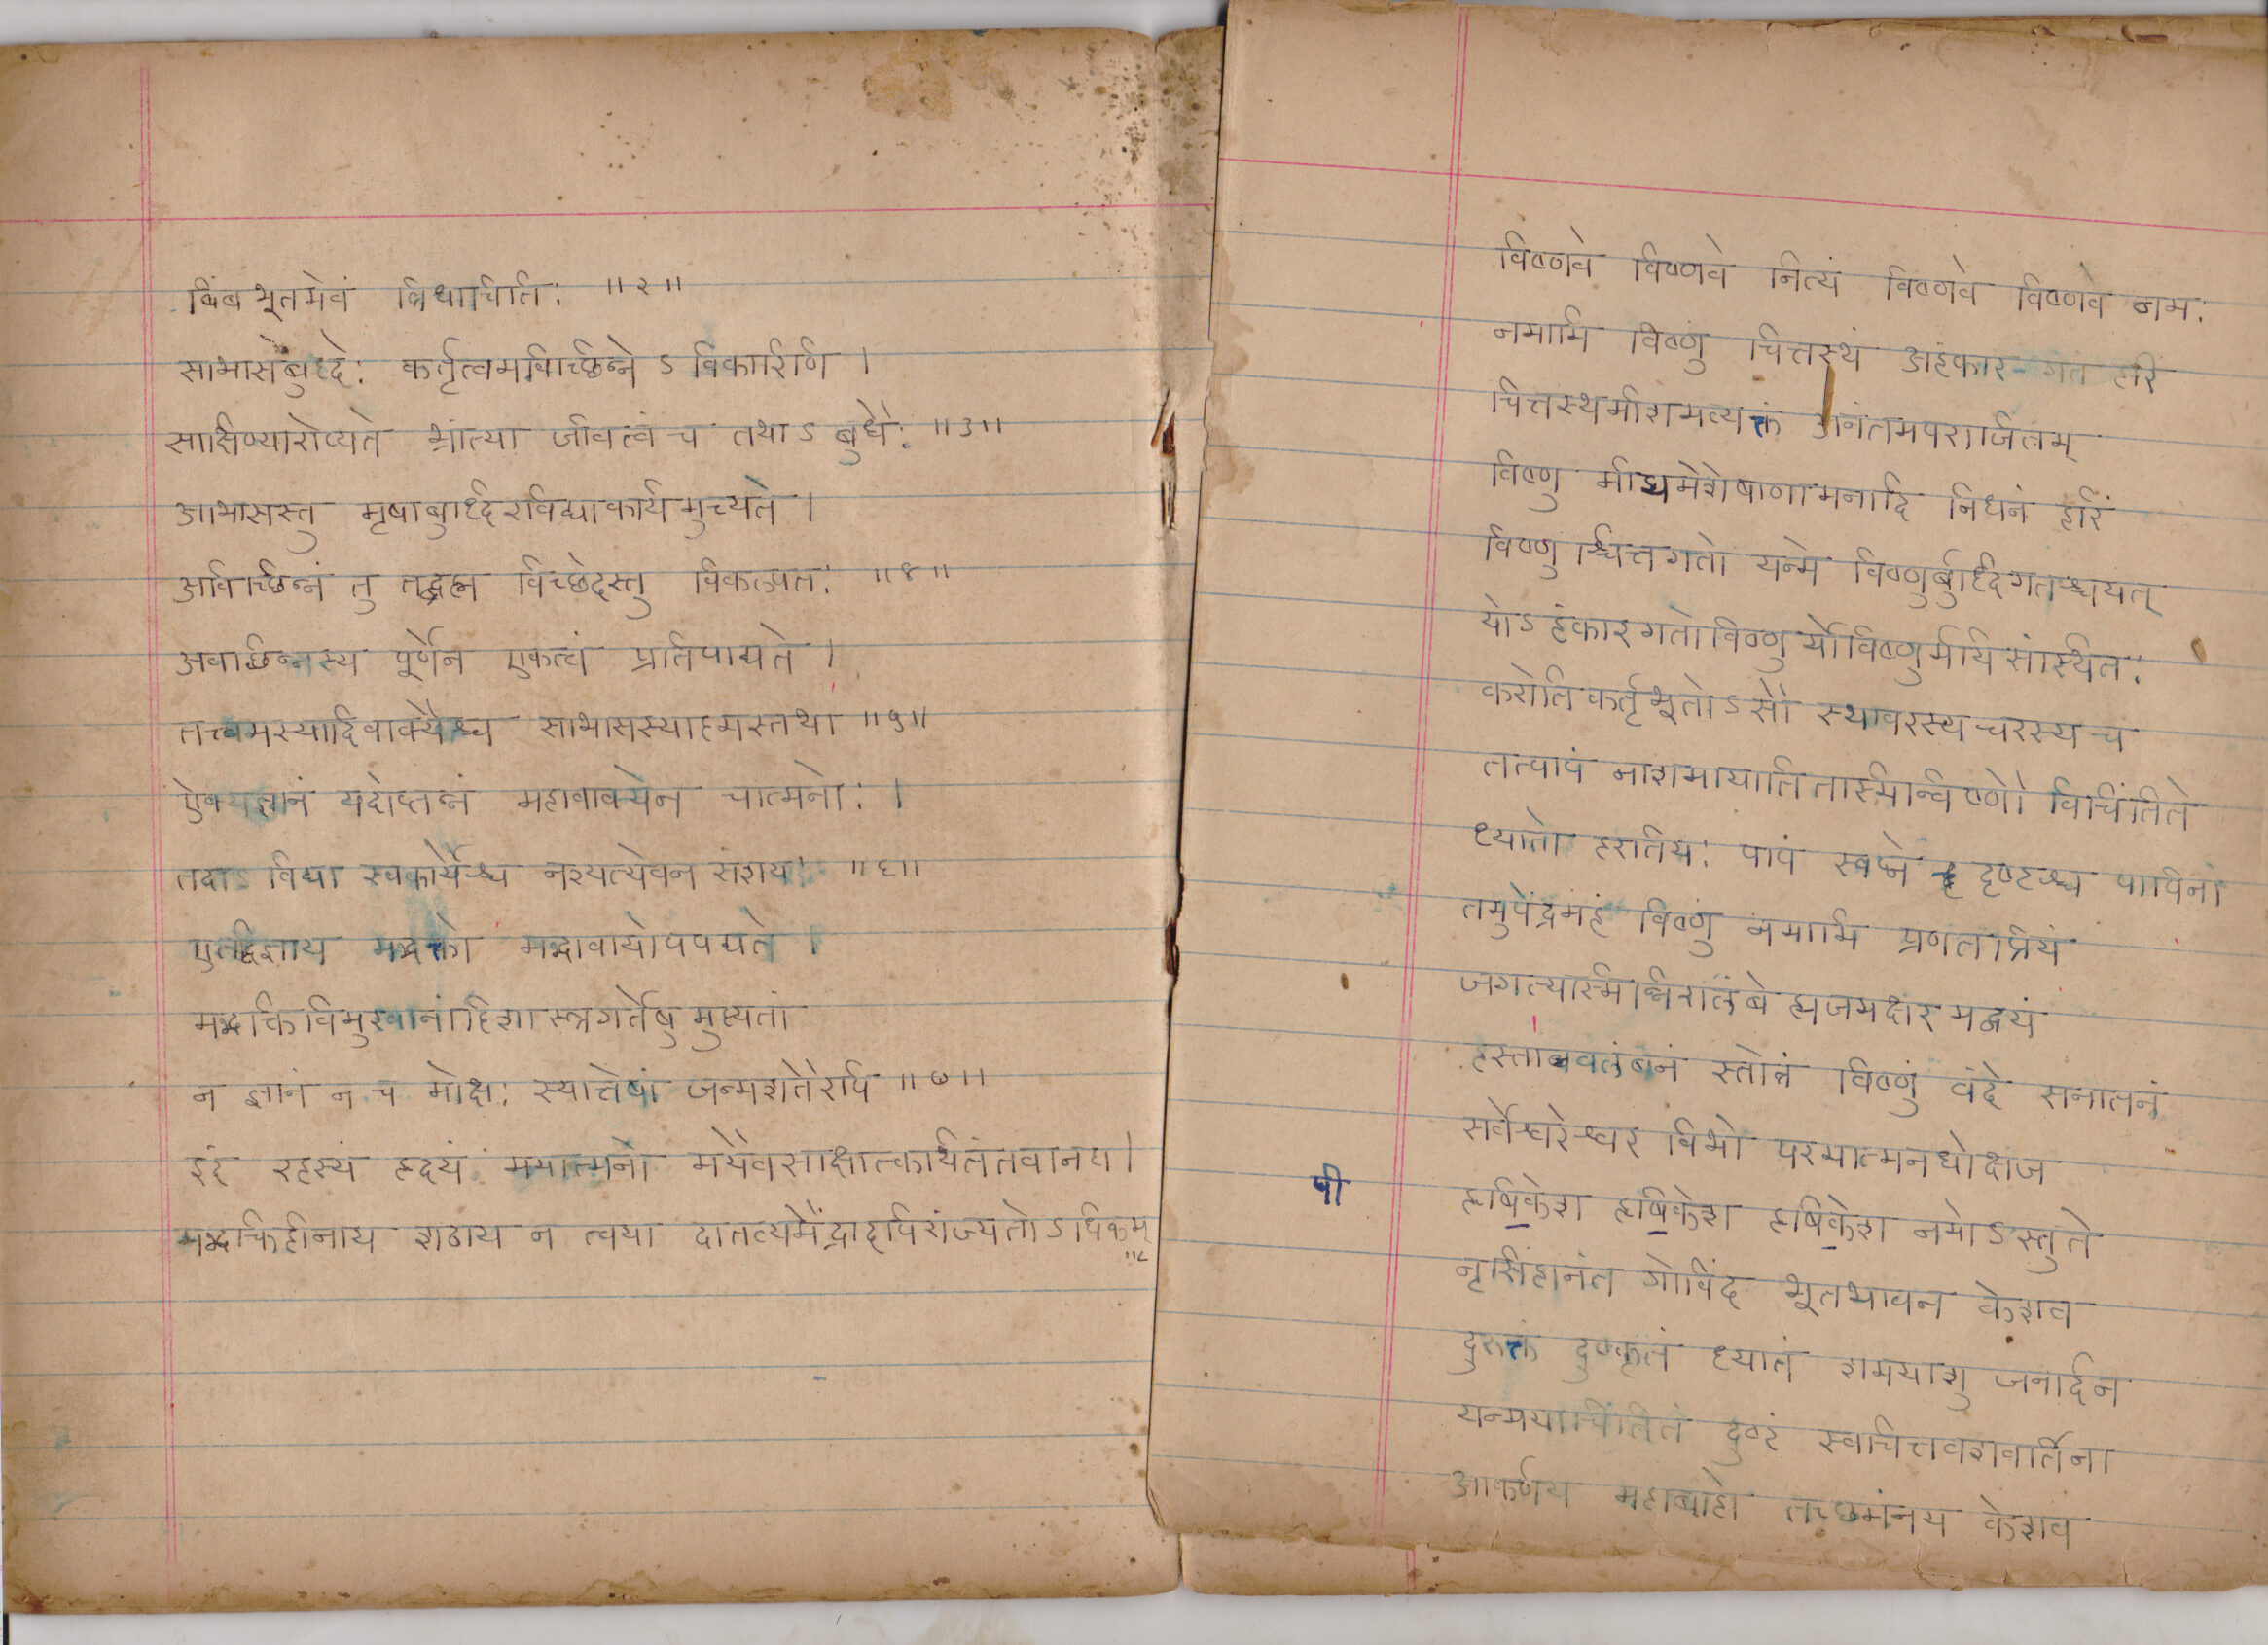 बिंब भूतमेवं त्रिधाचिति: ॥२॥
साभासेबुद्दे: कर्तृत्वमविच्छिन्ने ऽ विकारिणि ।
साक्षिण्यारोप्यते भ्रांत्या जीवत्वं च तथाऽ बुधै: ॥३॥
आभासस्तु मृषाबुद्धिरविद्याकार्य मुच्यते ।
अविच्छिन्नं तु तद्ब्रह्म विच्छेदस्तु विकल्पत: ॥४॥
अवच्छिन्नस्य पूर्णेन एकत्वं प्रतिपाद्यते ।
तत्त्वमस्यादिवाक्यैश्च साभासस्याहमस्तथा ॥५॥
ऐक्यज्ञानं यदोत्पन्नं महावाक्येन चात्मनो: ।
तदाऽ विद्या स्वकार्यैश्च नश्यत्येवन संशय: ॥६॥
एतद्विज्ञाय मद्भक्तो मद्भावायोपपद्यते ।
मद्भक्तिविमुखानांहिशास्त्रगर्तेषु मुह्यतां
न ज्ञानं न च मोक्ष: स्यात्तेषां जन्मशतैरपि ॥७॥
इदं रहस्यं हृदयं ममात्मनो मयैवसाक्षात्कथितंतवानघ ।
मद्भक्तिहीनाय शठाय न त्वया दातव्यमैंद्रादपिराज्यतोऽधिकम्
॥८
विष्णवे विष्णवे नित्यं विष्णवे विष्णवे नम:
नमामि विष्णुं चित्तस्थं अहंकार-गतं हरि
चित्तस्थमीशमव्यक्तं अनंतमपराजितम्
विष्णु मीड्यमशेषाणामनादि निधनं हरिं
विष्णु श्चित्तगतो यन्मे विष्णुर्बुद्दिगतश्चयत्
योऽहंकारगतोविष्णु र्योविष्णुर्मयिसंस्थित:
करोतिकर्तृभूतोऽसौ स्थावरस्यचरस्य च
तत्पापं नाशमायातितस्मिन्विष्णो विचिंतिते
ध्यातो हरतिय: पापं स्वप्ने दृष्टश्च पापिनां
तमुपेंद्रमहं विष्णुं नमामि प्रणतप्रियं
जगत्यस्मिन्निरालंबे ह्यजमक्षर मद्वयं
हस्तावलंबनं स्तोत्रं विष्णुं वंदे सनातनं
सर्वेश्वरेश्वर विभो परमात्मनधोक्षज
षी हृषिकेश हृषिकेश हृषिकेश नमोऽस्तुते
नृसिंहानंत गोविंद भूतभावन केशव
दुरुक्तं दुष्कृतं ध्यातं शमयाशु जनार्दन
यन्मयाचिंतितं दुष्टं स्वचित्तवशवर्तिना
आकर्णय महाबाहो तच्छमंनय केशव